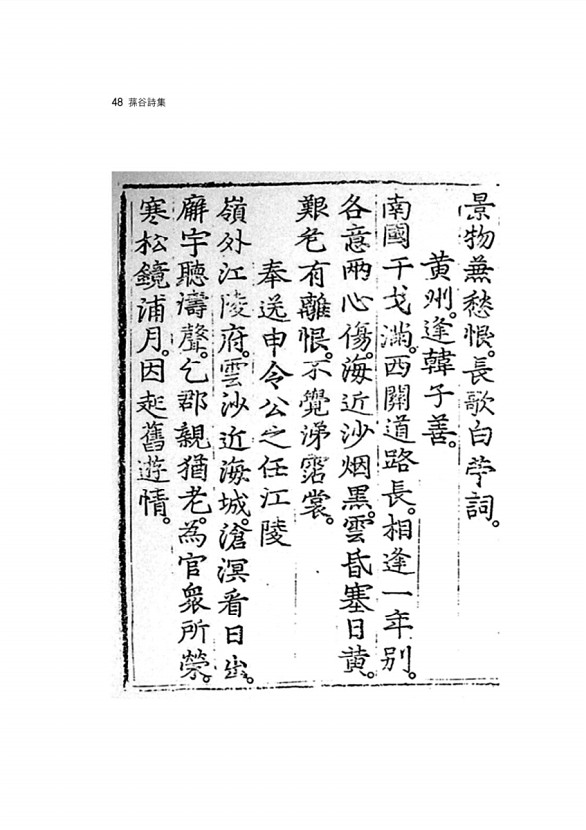 48 蓀谷詩集
景物兼愁恨。長歌白苧詞。
黃州。逢韓子善。
南國干戈滿。西關道路長。相逢一年別。
各意兩心傷。海近沙烟黑。雲昏塞日黃。
艱危有離恨。不覺涕霑裳。
奉送申令公之任江陵
嶺外江陵府。雲沙近海城。滄溟看日出。
廨宇聽濤聲。乞郡親猶老。為官衆所榮。
寒松鏡浦月。因起舊遊情。